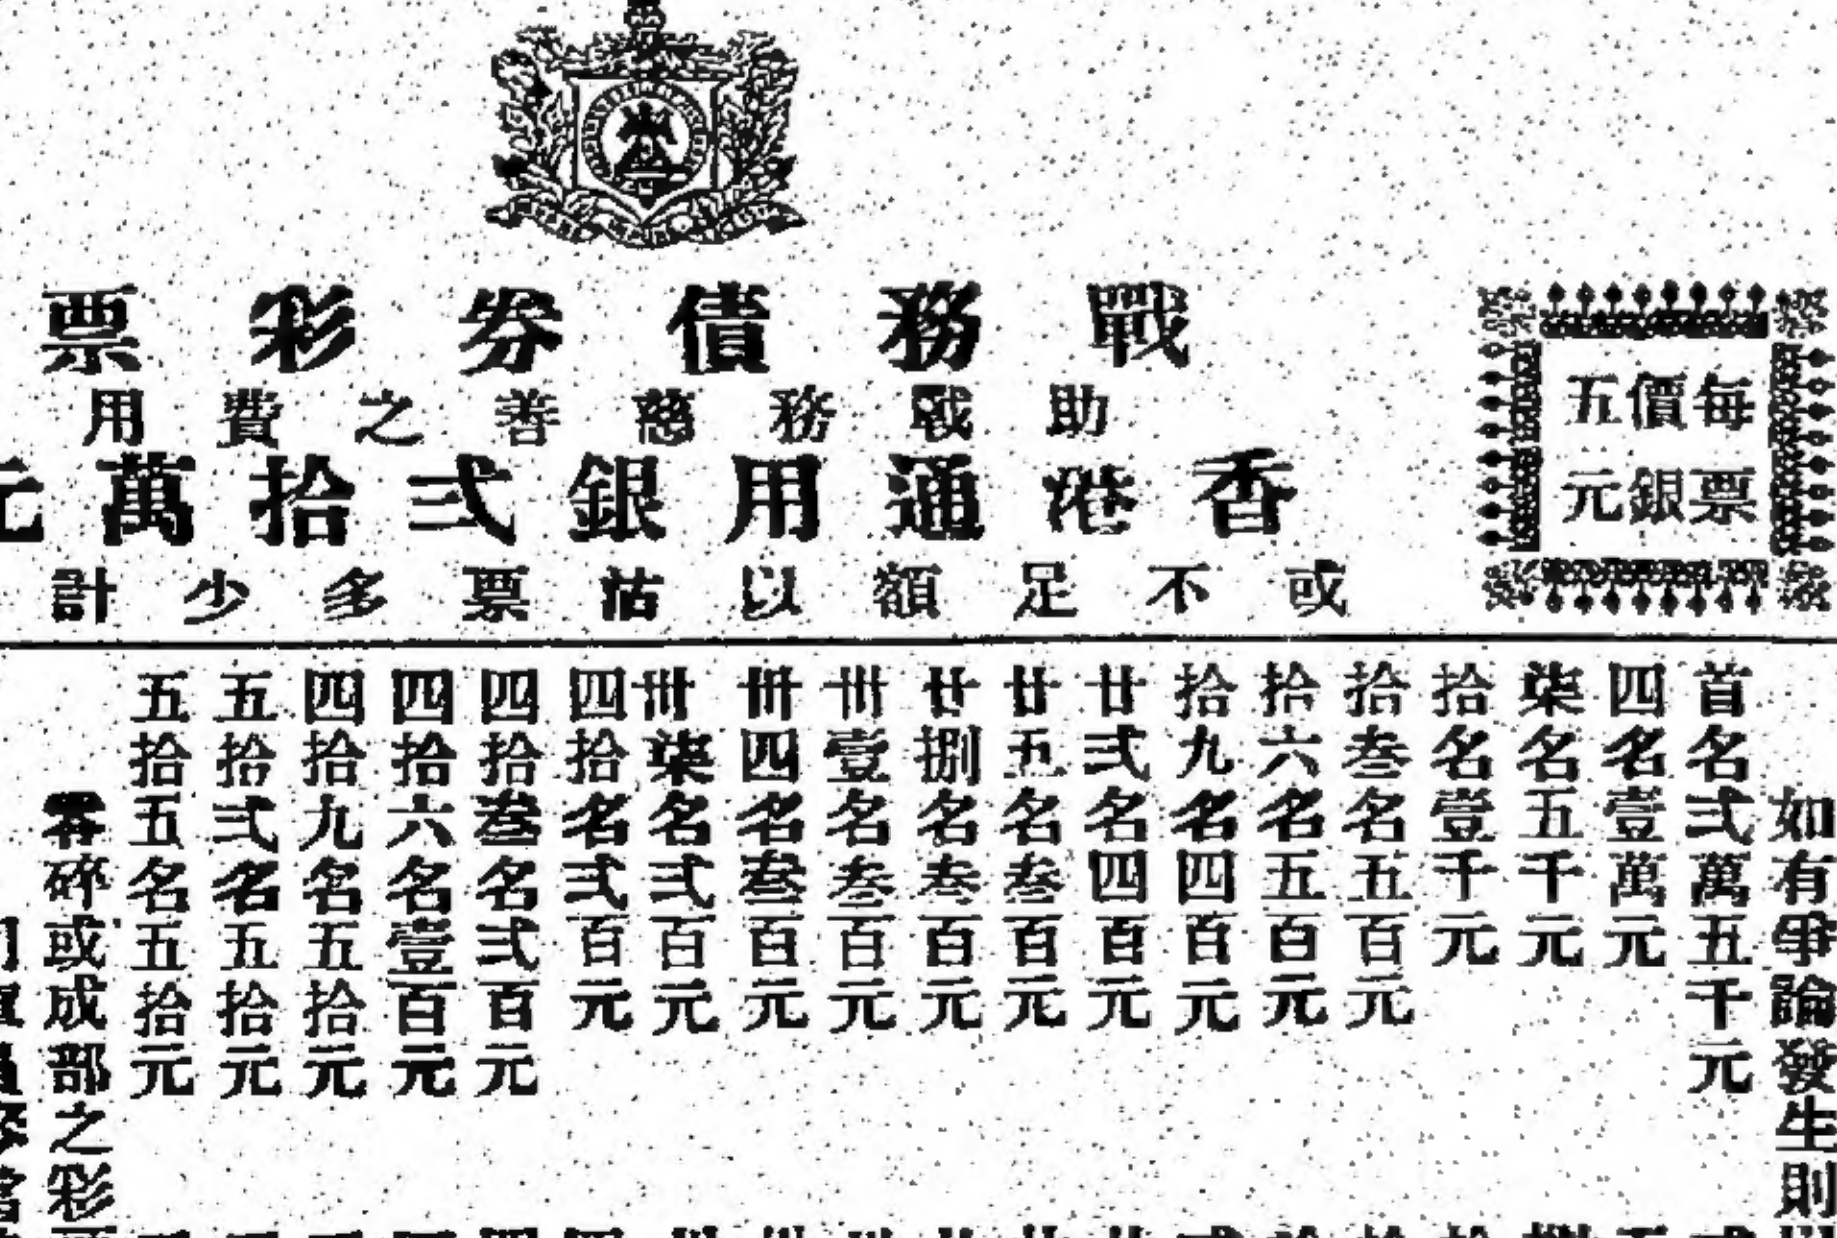 戰務債券彩票
助戰務慈善之費用
香港通用銀弍拾萬元
或不足額以沽票多少計
每票
價銀
五元
如有爭論發生則
首名弍萬五千元
四名壹萬元
柒名五千元
拾名壹千元
拾叁名五百元
拾六名五百元
拾九名四百元
廿弍名四百元
廿五名叁百元
廿捌名叁百元
卅壹名叁百元
卅四名叁百元
卅柒名弍百元
四拾名弍百元
四拾叁名弍百元
四拾六名壹百元
四拾九名五拾元
五拾弍名五拾元
五拾五名五拾元
零碎或成部之彩票